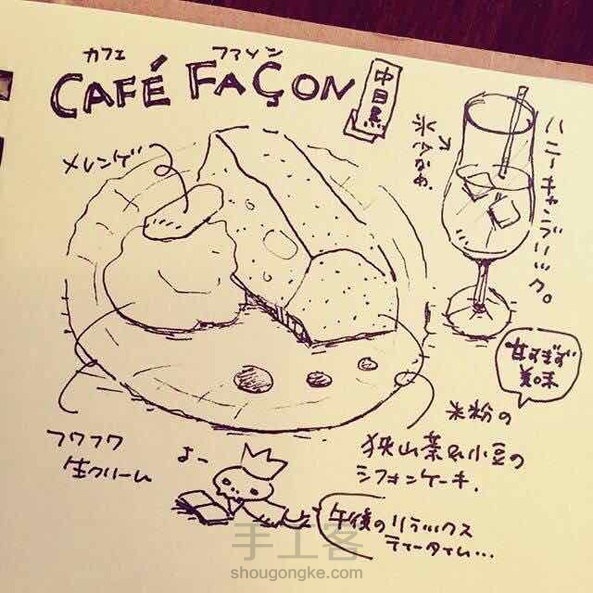 カフェ ファソン
CAFÉ FAÇON
中目黒
メレンゲ
氷少なめ。
ハニーキャラブリック。
甘すぎず
美味
フワフワ
生クリーム
米粉の
狭山茶&小豆の
シフォンケーキ.
よー
午後のリラックス
ティータイム...
手工客
shougongke.com